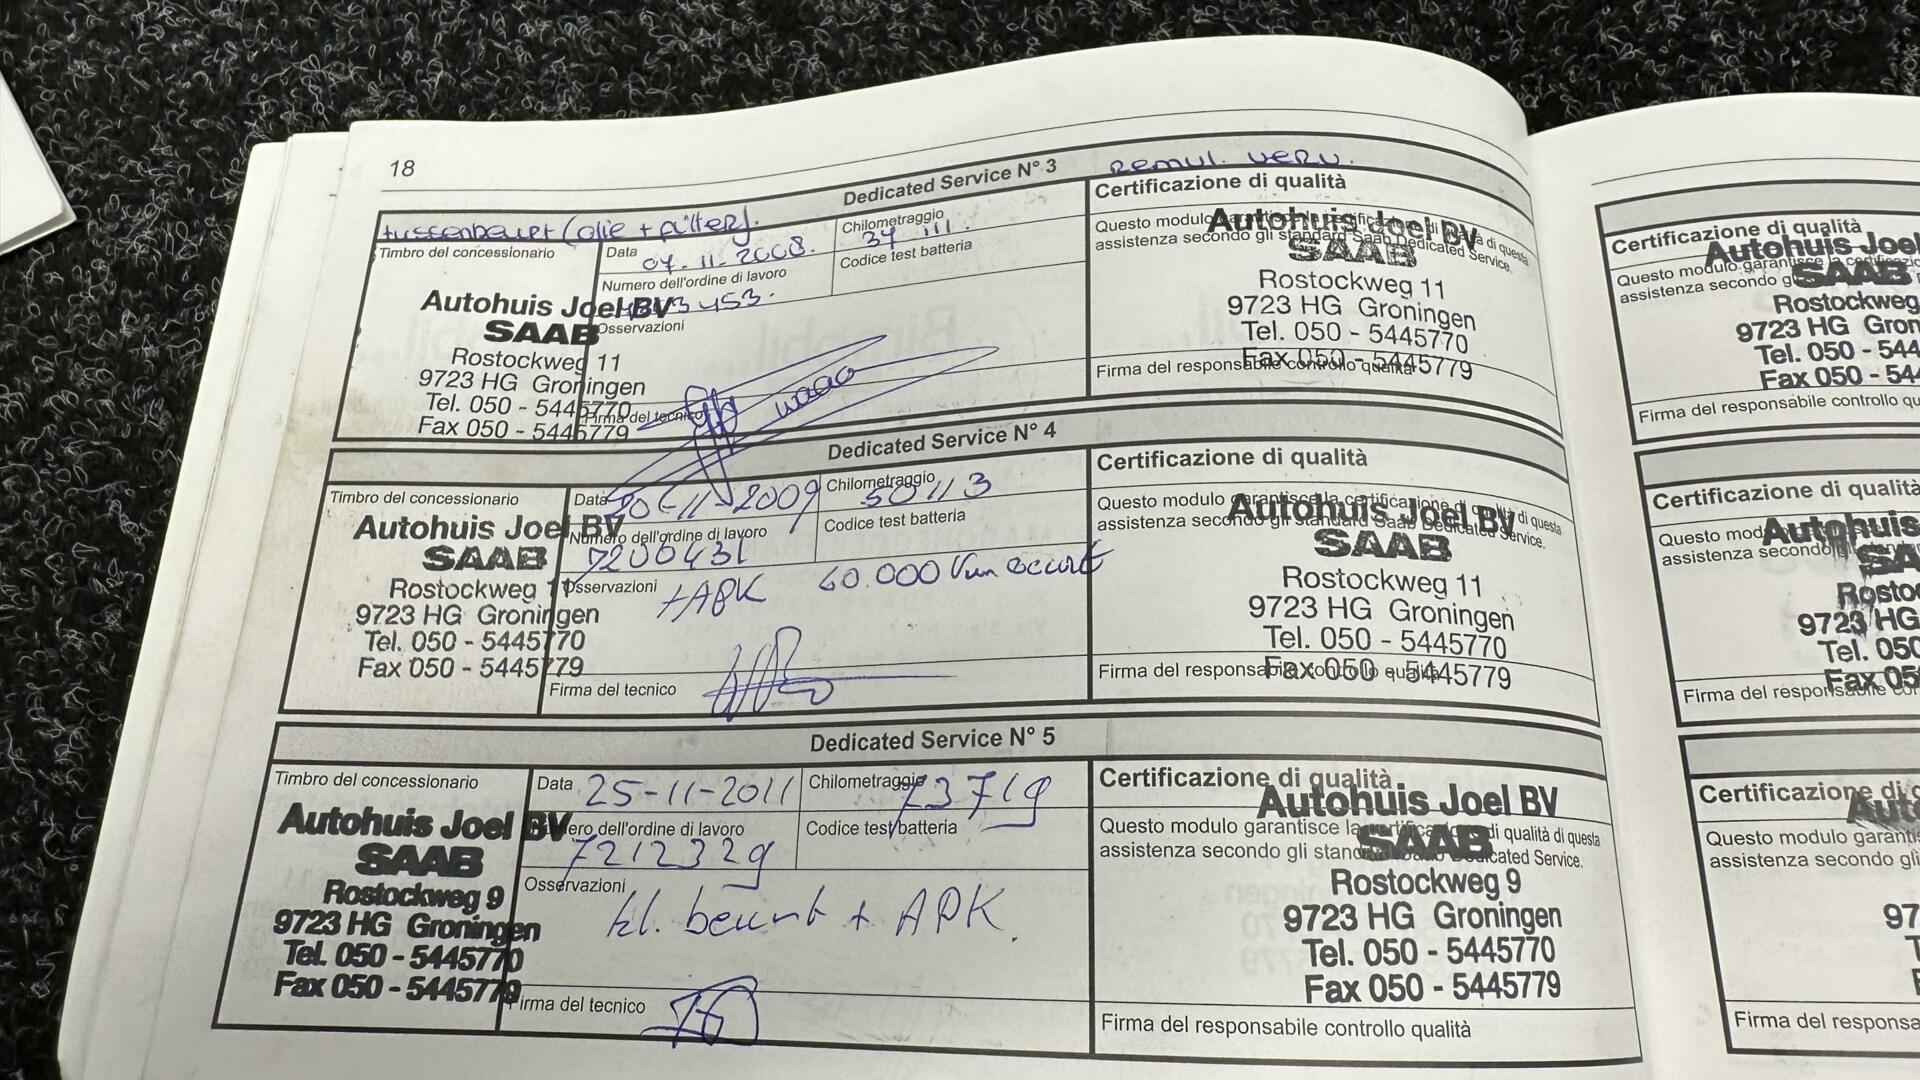 18
Dedicated Service N° 3
remvl. verv.
tussenbeurt (olie + filter).
Timbro del concessionario
Data
04-11-2008.
Chilometraggio
34 111.
Numero dell'ordine di lavoro
Codice test batteria
Osservazioni
Autohuis Joel BV
SAAB
Rostockweg 11
9723 HG Groningen
Tel. 050 - 5445770
Fax 050 - 5445779
Firma del tecnico
Certificazione di qualità
Questo modulo garantisce la certificazione di qualità di questa
assistenza secondo gli standard Saab Dedicated Service.
Autohuis Joel BV
SAAB
Rostockweg 11
9723 HG Groningen
Tel. 050 - 5445770
Fax 050 - 5445779
Firma del responsabile controllo qualità
Dedicated Service N° 4
Timbro del concessionario
Data
20-11-2009
Chilometraggio
50113
Numero dell'ordine di lavoro
7200431
Codice test batteria
Osservazioni
+APK 60.000 km beurt
Autohuis Joel BV
SAAB
Rostockweg 11
9723 HG Groningen
Tel. 050 - 5445770
Fax 050 - 5445779
Firma del tecnico
Certificazione di qualità
Questo modulo garantisce la certificazione di qualità di questa
assistenza secondo gli standard Saab Dedicated Service.
Autohuis Joel BV
SAAB
Rostockweg 11
9723 HG Groningen
Tel. 050 - 5445770
Fax 050 - 5445779
Firma del responsabile controllo qualità
Dedicated Service N° 5
Timbro del concessionario
Data
25-11-2011
Chilometraggio
73719
Numero dell'ordine di lavoro
7212329
Codice test batteria
Osservazioni
kl. beurt + APK.
Autohuis Joel BV
SAAB
Rostockweg 9
9723 HG Groningen
Tel. 050 - 5445770
Fax 050 - 5445779
Firma del tecnico
Certificazione di qualità
Questo modulo garantisce la certificazione di qualità di questa
assistenza secondo gli standard Saab Dedicated Service.
Autohuis Joel BV
SAAB
Rostockweg 9
9723 HG Groningen
Tel. 050 - 5445770
Fax 050 - 5445779
Firma del responsabile controllo qualità
Certificazione di qualità
Questo modulo garantisce
assistenza secondo
Autohuis Joel
SAAB
Rostockweg
9723 HG Gron
Tel. 050 - 544
Fax 050 - 54
Firma del responsabile controllo qu
Certificazione di qualità
Questo mod
assistenza secondo
Autohuis
SA
Rosto
9723 HG
Tel. 050
Fax 05
Firma del responsabile con
Certificazione di q
Auto
Questo modulo garantis
assistenza secondo gli
97
Firma del responsa